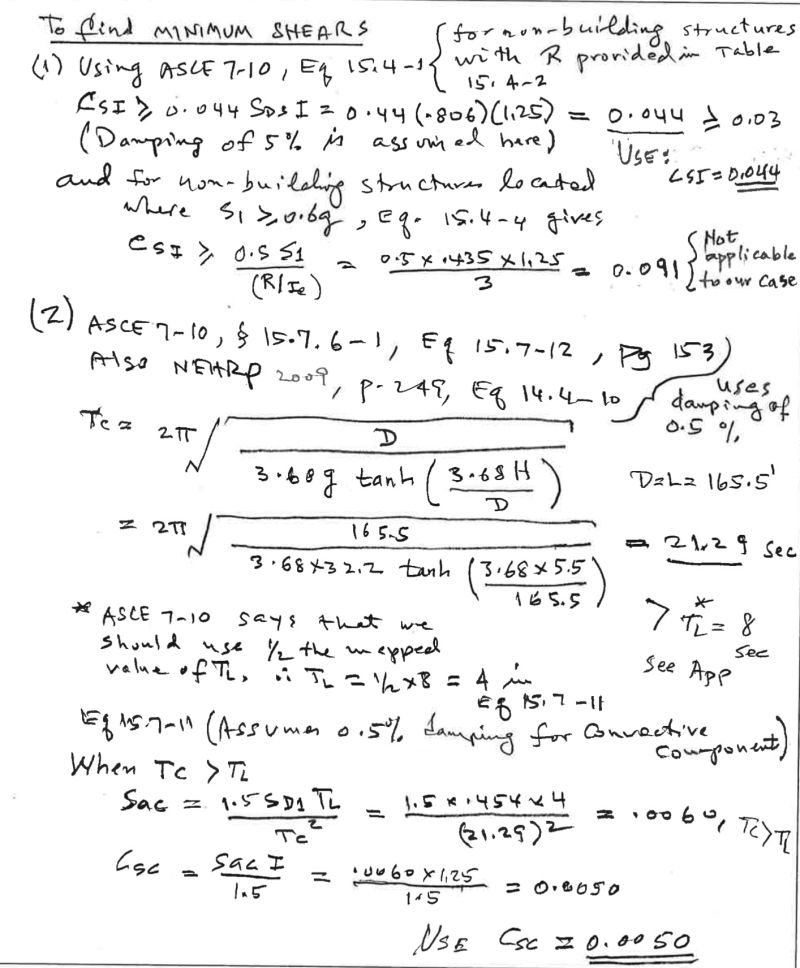 To find MINIMUM SHEARS
(1) Using ASCE 7-10, Eq 15.4-1 { for non-building structures with R provided in Table 15.4-2
CSI ≥ 0.044 SDS I = 0.44 (.806)(1.25) = 0.044 ≥ 0.03
(Damping of 5% is assumed here) USE: CSI = 0.044
and for non-building structures located
where S1 ≥ 0.6g, Eq. 15.4-4 gives
CSI ≥ 0.5 S1 / (R/Ie) = 0.5 x .435 x 1.25 / 3 = 0.091 { Not applicable to our case
(2) ASCE 7-10, § 15.7.6-1, Eq 15.7-12, Pg 153)
Also NEHRP 2009, p. 249, Eq 14.4-10
uses damping of 0.5 %
Tc = 2π √ D / 3.68 g tanh (3.68 H / D) D=L= 165.5'
= 2π √ 165.5 / 3.68x32.2 tanh (3.68 x 5.5 / 165.5) = 21.29 sec
> TL* = 8 sec
See App
* ASCE 7-10 says that we
should use 1/2 the mapped
value of TL, ∴ TL = 1/2 x 8 = 4 in
Eq 15.7-11
Eq 15.7-11 (Assumes 0.5% damping for Convective component)
When Tc > TL
Sac = 1.5 SD1 TL / Tc² = 1.5 x .454 x 4 / (21.29)² = .0060, Tc>TL
Csc = Sac I / 1.5 = .0060 x 1.25 / 1.5 = 0.0050
USE Csc = 0.0050